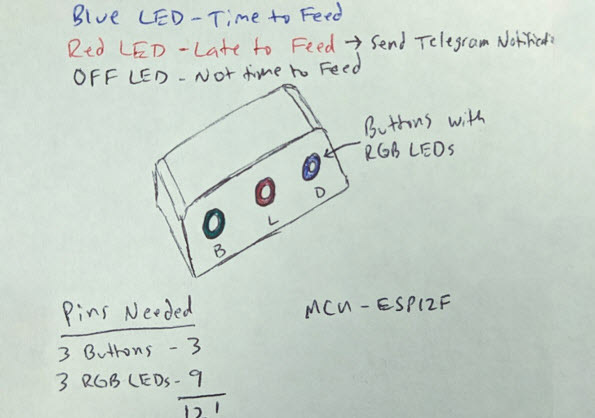 Blue LED - Time to Feed
Red LED - Late to Feed → Send Telegram
OFF LED - Not time to Feed
Buttons with
RGB LEDs
B
L
D
Pins Needed
3 Buttons - 3
3 RGB LEDs - 9
12!
MCU - ESP12F